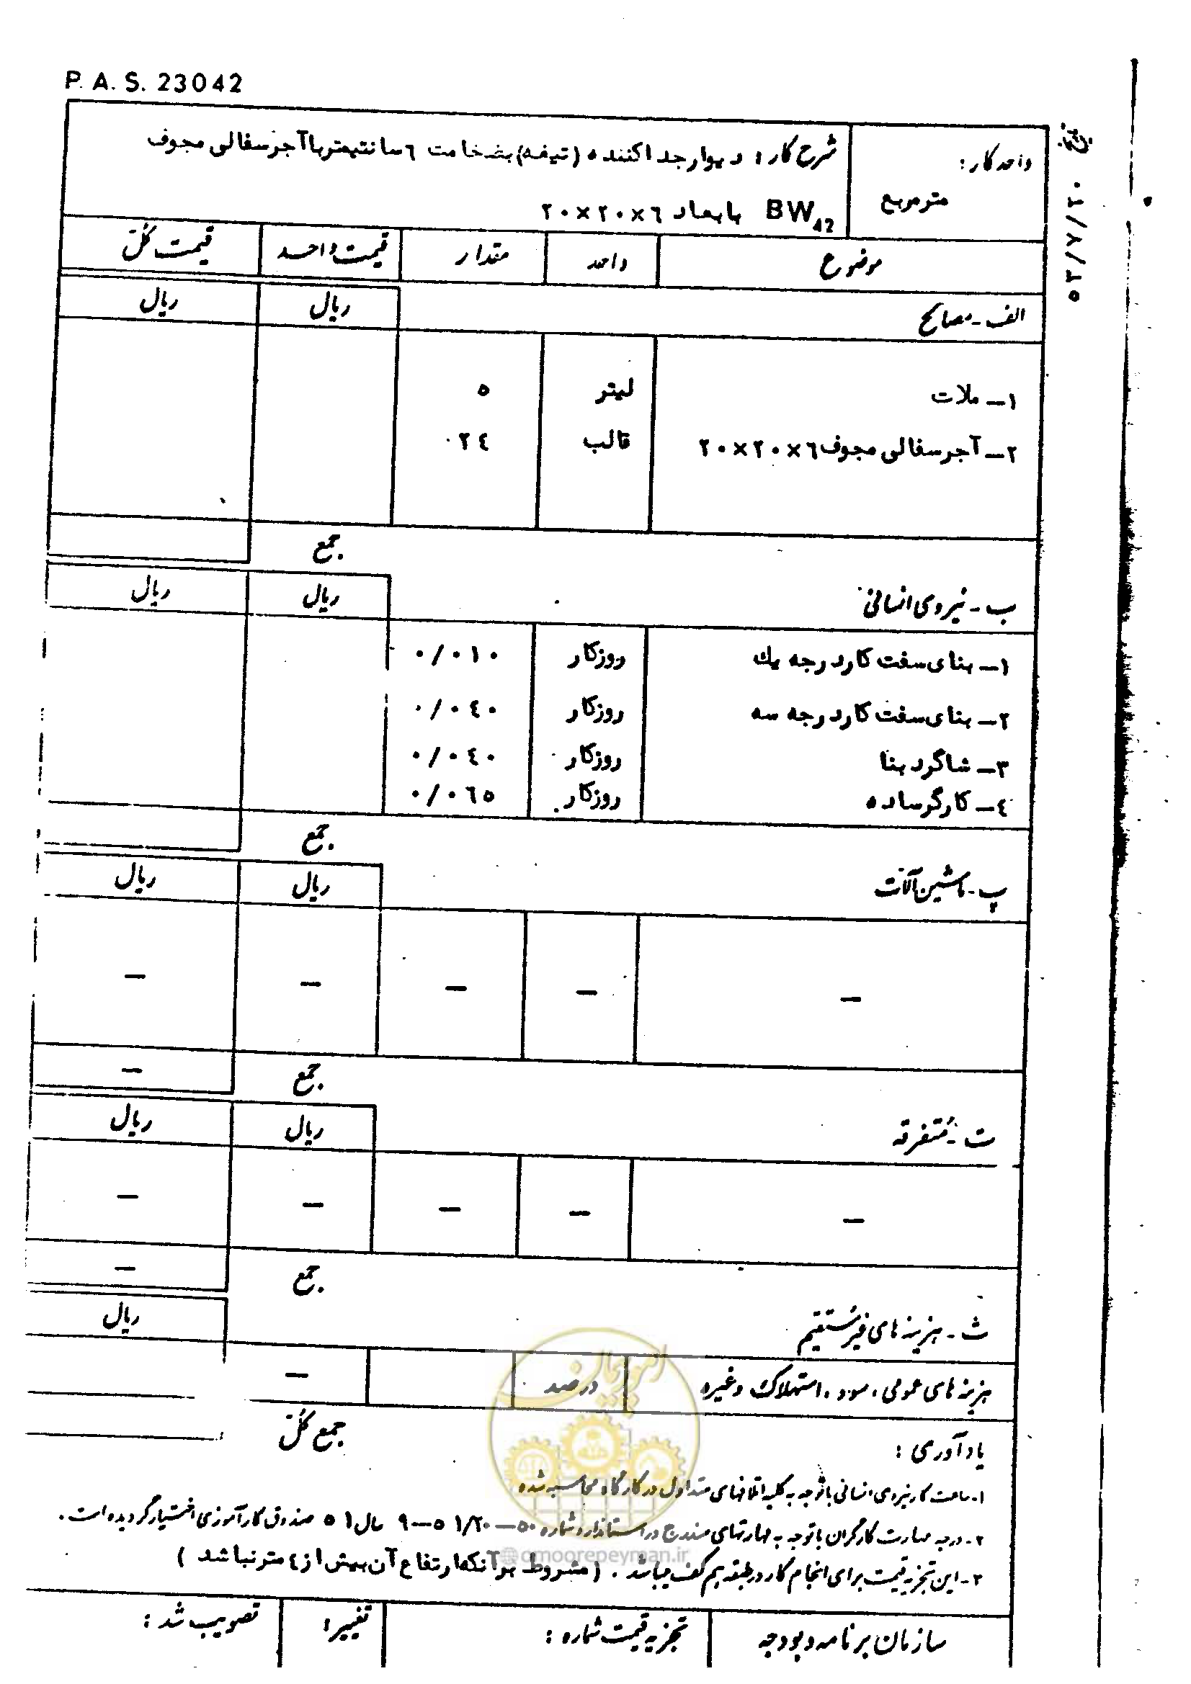 P. A. S. 23042
تاریخ ۵۳/۷/۳۰
واحد کار :
مترمربع
شرح کار : دیوار جدا کننده (تیغه) بضخامت ۶ سانتیمتر با آجر سفالی مجوف
BW42 بابعاد ۶×۲۰×۲۰
موضوع واحد مقدار قیمت واحد قیمت کل
الف - مصالح ریال ریال
۱- ملات لیتر ۵
۲- آجر سفالی مجوف ۶×۲۰×۲۰ قالب ۲۴
جمع
ب - نیروی انسانی ریال ریال
۱- بنای سفت کار درجه یک روزکار ۰/۰۱۰
۲- بنای سفت کار درجه سه روزکار ۰/۰۴۰
۳- شاگرد بنا روزکار ۰/۰۴۰
۴- کارگر ساده روزکار ۰/۰۶۵
جمع
پ - ماشین آلات ریال ریال
— — — — —
جمع —
ت - متفرقه ریال ریال
— — — — —
جمع —
ث - هزینه های غیرمستقیم ریال
هزینه های عمومی ، سود ، استهلاک وغیره درصد —
جمع کل
یادآوری :
۱- ساعت کار نیروی انسانی با توجه به کلیه اتلافهای متداول در کارگاه محاسبه شده
۲- درجه مهارت کارگران با توجه به مهارتهای مندرج در استاندارد شماره ۵۰—۱/۲۰ ۵—۹ سال ۵۱ صندوق کارآموزی اختیار گردیده است .
۳- این تجزیه قیمت برای انجام کار در طبقه هم کف میباشد . (مشروط بر آنکه ارتفاع آن بیش از ۴ متر نباشد )
امورپیمان
@omoorepeyman.ir
سازمان برنامه و بودجه تجزیه قیمت شماره : تغییر : تصویب شد :